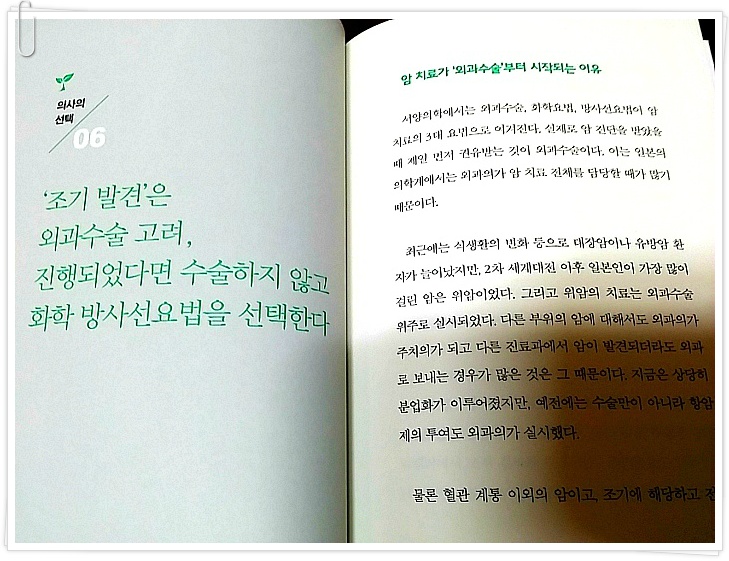 의사의
선택
06
'조기 발견'은
외과수술 고려,
진행되었다면 수술하지 않고
화학 방사선요법을 선택한다
암 치료가 '외과수술'부터 시작되는 이유
서양의학에서는 외과수술, 화학요법, 방사선요법이 암
치료의 3대 요법으로 여겨진다. 실제로 암 진단을 받았을
때 제일 먼저 권유받는 것이 외과수술이다. 이는 일본의
의학계에서는 외과의가 암 치료 전체를 담당할 때가 많기
때문이다.
최근에는 식생활의 변화 등으로 대장암이나 유방암 환
자가 늘어났지만, 2차 세계대전 이후 일본인이 가장 많이
걸린 암은 위암이었다. 그리고 위암의 치료는 외과수술
위주로 실시되었다. 다른 부위의 암에 대해서도 외과의가
주치의가 되고 다른 진료과에서 암이 발견되더라도 외과
로 보내는 경우가 많은 것은 그 때문이다. 지금은 상당히
분업화가 이루어졌지만, 예전에는 수술만이 아니라 항암
제의 투여도 외과의가 실시했다.
물론 혈관 계통 이외의 암이고, 조기에 해당하고